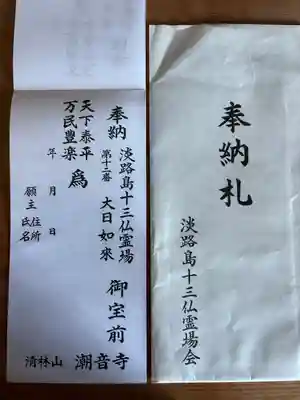 奉納 淡路島十三仏霊場
第十二番 大日如來 御宝前
天下泰平
万民豊楽 為
年 月 日
願主 住所
氏名
清林山 潮音寺
奉納札
淡路島十三仏霊場会